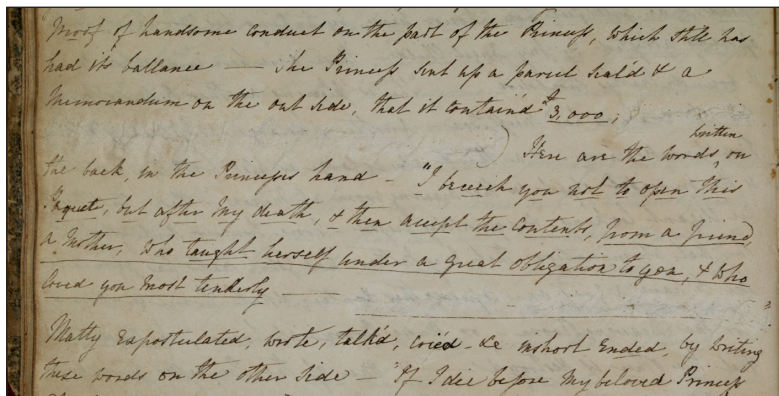 Proof of handsome conduct on the part of the Princess, which still has
had its ballance — The Princess sent up a parcel seal'd & a
Memorandum on the out side, that it contain'd £3,000,
Here are the words, written on
the back, in the Princesses hand – "I beseech you not to open this
Paquet, but after my death, & then accept the contents, from a friend,
a Mother, who taught herself under a great obligation to you, & who
loved you most tenderly —"
Matty expostulated, wrote, talk'd, cried – &c inshort Ended, by writing
these words on the other side – "If I die before my beloved Princess